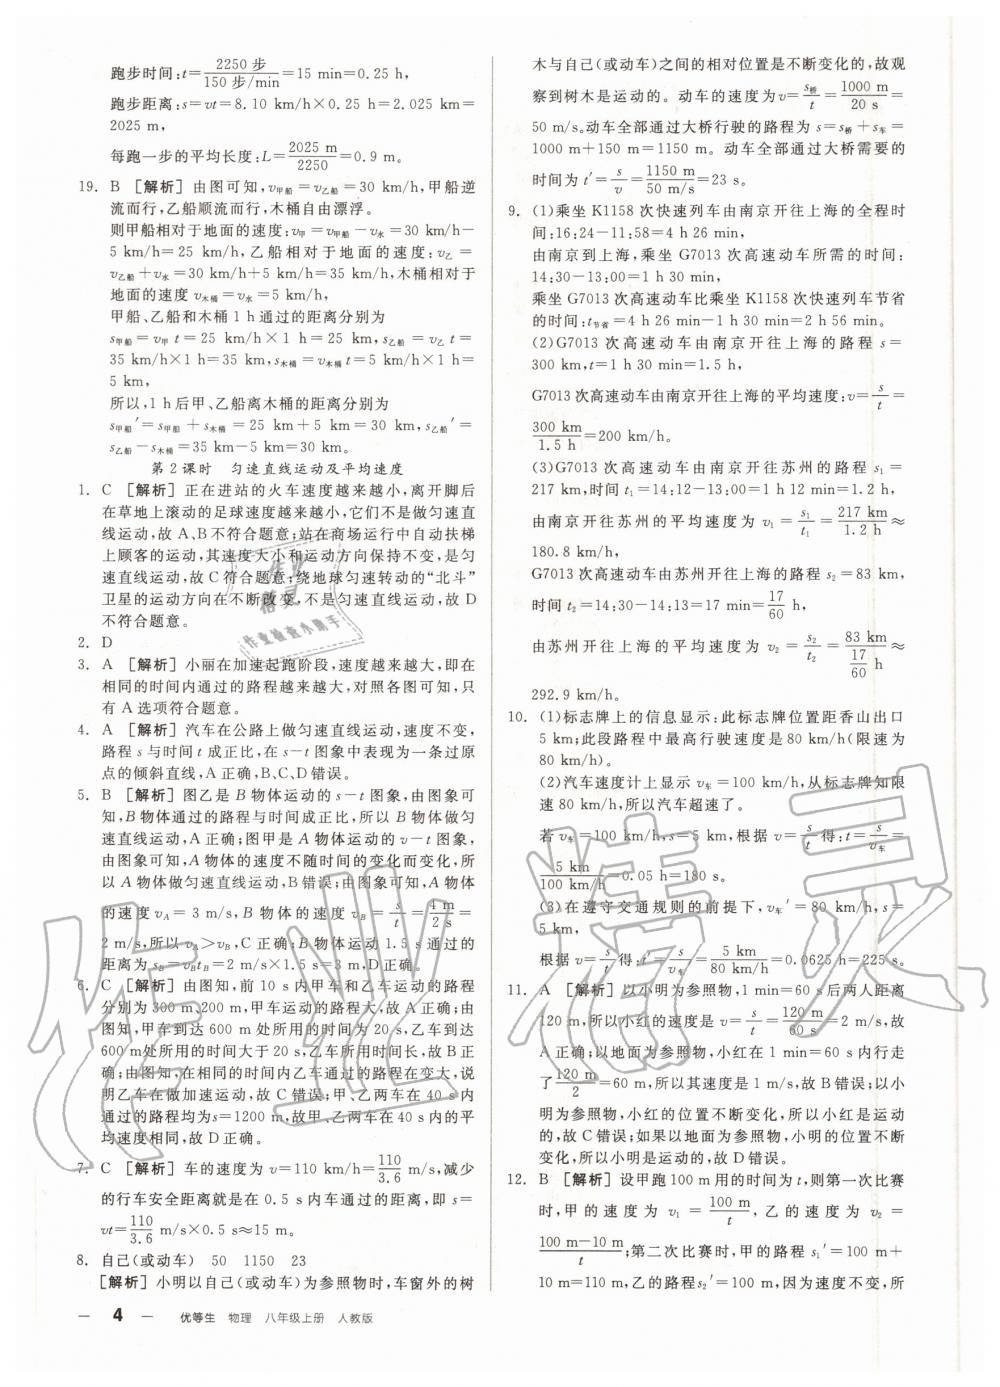 跑步时间:t=2250 步/150 步/min=15 min=0.25 h,
跑步距离:s=vt=8.10 km/h×0.25 h=2.025 km=
2025 m,
每跑一步的平均长度:L=2025 m/2250=0.9 m。
19. B [解析] 由图可知,v甲船=v乙船=30 km/h,甲船逆
流而行,乙船顺流而行,木桶自由漂浮。
则甲船相对于地面的速度:v甲=v甲船-v水=30 km/h-
5 km/h=25 km/h,乙船相对于地面的速度:v乙=
v乙船+v水=30 km/h+5 km/h=35 km/h,木桶相对于
地面的速度 v木桶=v水=5 km/h,
甲船、乙船和木桶 1 h 通过的距离分别为
s甲船=v甲 t=25 km/h×1 h=25 km,s乙船=v乙 t=
35 km/h×1 h=35 km,s木桶=v木桶 t=5 km/h×1 h=
5 km,
所以,1 h 后甲、乙船离木桶的距离分别为
s甲船′=s甲船+s木桶=25 km+5 km=30 km,s乙船′=
s乙船-s木桶=35 km-5 km=30 km。
第 2 课时 匀速直线运动及平均速度
1. C [解析] 正在进站的火车速度越来越小,离开脚后
在草地上滚动的足球速度越来越小,它们不是做匀速直
线运动,故 A、B 不符合题意;站在商场运行中自动扶梯
上顾客的运动,其速度大小和运动方向保持不变,是匀
速直线运动,故 C 符合题意;绕地球匀速转动的“北斗”
卫星的运动方向在不断改变,不是匀速直线运动,故 D
不符合题意。
2. D
3. A [解析] 小丽在加速起跑阶段,速度越来越大,即在
相同的时间内通过的路程越来越大,对照各图可知,只
有 A 选项符合题意。
4. A [解析] 汽车在公路上做匀速直线运动,速度不变,
路程 s 与时间 t 成正比,在 s-t 图象中表现为一条过原
点的倾斜直线,A 正确,B、C、D 错误。
5. B [解析] 图乙是 B 物体运动的 s-t 图象,由图象可知,
B 物体通过的路程与时间成正比,所以 B 物体做匀
速直线运动,A 正确;图甲是 A 物体运动的 v-t 图象,
由图象可知,A 物体的速度不随时间的变化而变化,所
以 A 物体做匀速直线运动,B 错误;由图象可知,A 物体
的速度 vA=3 m/s,B 物体的速度 vB=s/t=4 m/2 s=
2 m/s,所以 vA>vB,C 正确;B 物体运动 1.5 s 通过的
距离为 sB=vBtB=2 m/s×1.5 s=3 m,D 正确。
6. C [解析] 由图知,前 10 s 内甲车和乙车运动的路程
分别为 300 m、200 m,甲车运动的路程大,故 A 正确;由
图知,甲车到达 600 m 处所用的时间为 20 s,乙车到达
600 m处所用的时间大于 20 s,乙车所用时间长,故 B 正
确;由图知,在相同的时间内乙车运动的路程在变大,说
明乙车在做加速运动,故 C 错误;甲、乙两车在 40 s 内
通过的路程均为s=1200 m,故甲、乙两车在 40 s 内的平
均速度相同,故 D 正确。
7. C [解析] 车的速度为 v=110 km/h=110/3.6 m/s,减少
的行车安全距离就是在 0.5 s 内车通过的距离,即 s=
vt=110/3.6 m/s×0.5 s≈15 m。
8. 自己(或动车) 50 1150 23
[解析] 小明以自己(或动车)为参照物时,车窗外的树
木与自己(或动车)之间的相对位置是不断变化的,故观
察到树木是运动的。动车的速度为 v=s桥/t=1000 m/20 s=
50 m/s。动车全部通过大桥行驶的路程为 s=s桥+s车=
1000 m+150 m=1150 m。动车全部通过大桥需要的
时间为 t′=s/v=1150 m/50 m/s=23 s。
9. (1)乘坐 K1158 次快速列车由南京开往上海的全程时
间:16:24-11:58=4 h 26 min,
由南京到上海,乘坐 G7013 次高速动车所需的时间:
14:30-13:00=1 h 30 min,
乘坐 G7013 次高速动车比乘坐 K1158 次快速列车节省
的时间:t节省=4 h 26 min-1 h 30 min=2 h 56 min。
(2)G7013 次高速动车由南京开往上海的路程 s=
300 km,t=1 h 30 min=1.5 h,
G7013 次高速动车由南京开往上海的平均速度:v=s/t=
300 km/1.5 h=200 km/h。
(3)G7013 次高速动车由南京开往苏州的路程 s1=
217 km,时间 t1=14:12-13:00=1 h 12 min=1.2 h,
由南京开往苏州的平均速度为 v1=s1/t1=217 km/1.2 h≈
180.8 km/h,
G7013 次高速动车由苏州开往上海的路程 s2=83 km,
时间 t2=14:30-14:13=17 min=17/60 h,
由苏州开往上海的平均速度为 v2=s2/t2=83 km/17/60 h≈
292.9 km/h。
10. (1)标志牌上的信息显示:此标志牌位置距香山出口
5 km;此段路程中最高行驶速度是 80 km/h(限速为
80 km/h)。
(2)汽车速度计上显示 v车=100 km/h,从标志牌知限
速 80 km/h,所以汽车超速了。
若 v车=100 km/h,s=5 km,根据 v=s/t得:t=s/v车=
5 km/100 km/h=0.05 h=180 s。
(3)在遵守交通规则的前提下,v车′=80 km/h,s=
5 km,
根据 v=s/t得:t′=s/v车′=5 km/80 km/h=0.0625 h=225 s。
11. A [解析] 以小明为参照物,1 min=60 s 后两人距离
120 m,所以小红的速度是 v=s/t=120 m/60 s=2 m/s,故
A 正确;以地面为参照物,小红在 1 min=60 s 内行走
了120 m/2=60 m,所以其速度是 1 m/s,故 B 错误;以小
明为参照物,小红的位置不断变化,所以小红是运动
的,故 C 错误;如果以地面为参照物,小明的位置不断
变化,所以小明是运动的,故 D 错误。
12. B [解析] 设甲跑 100 m 用的时间为 t,则第一次比赛
时,甲的速度为 v1=100 m/t,乙的速度为 v2=
100 m-10 m/t;第二次比赛时,甲的路程 s1′=100 m+
10 m=110 m,乙的路程 s2′=100 m,因为速度不变,所
— 4 — 优等生 物理 八年级上册 人教版
作业精灵
作业
精灵
作业检查小助手